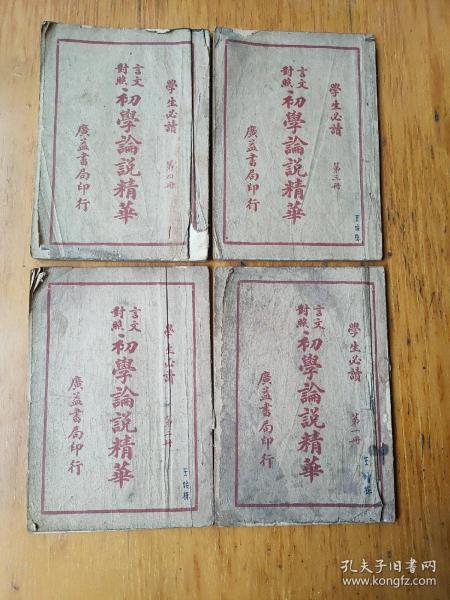 學生必讀 第四册
言文對照 初學論說精華
廣益書局印行
學生必讀 第三册
言文對照 初學論說精華
廣益書局印行
學生必讀 第二册
言文對照 初學論說精華
廣益書局印行
學生必讀 第一册
言文對照 初學論說精華
廣益書局印行
孔夫子旧书网
www.kongfz.com